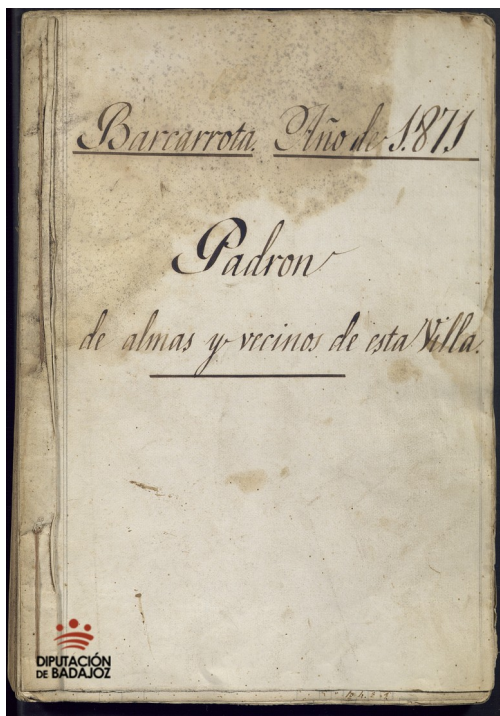 Barcarrota. Año de 1.871
Padron
de almas y vecinos de esta Villa.
DIPUTACIÓN
DE BADAJOZ